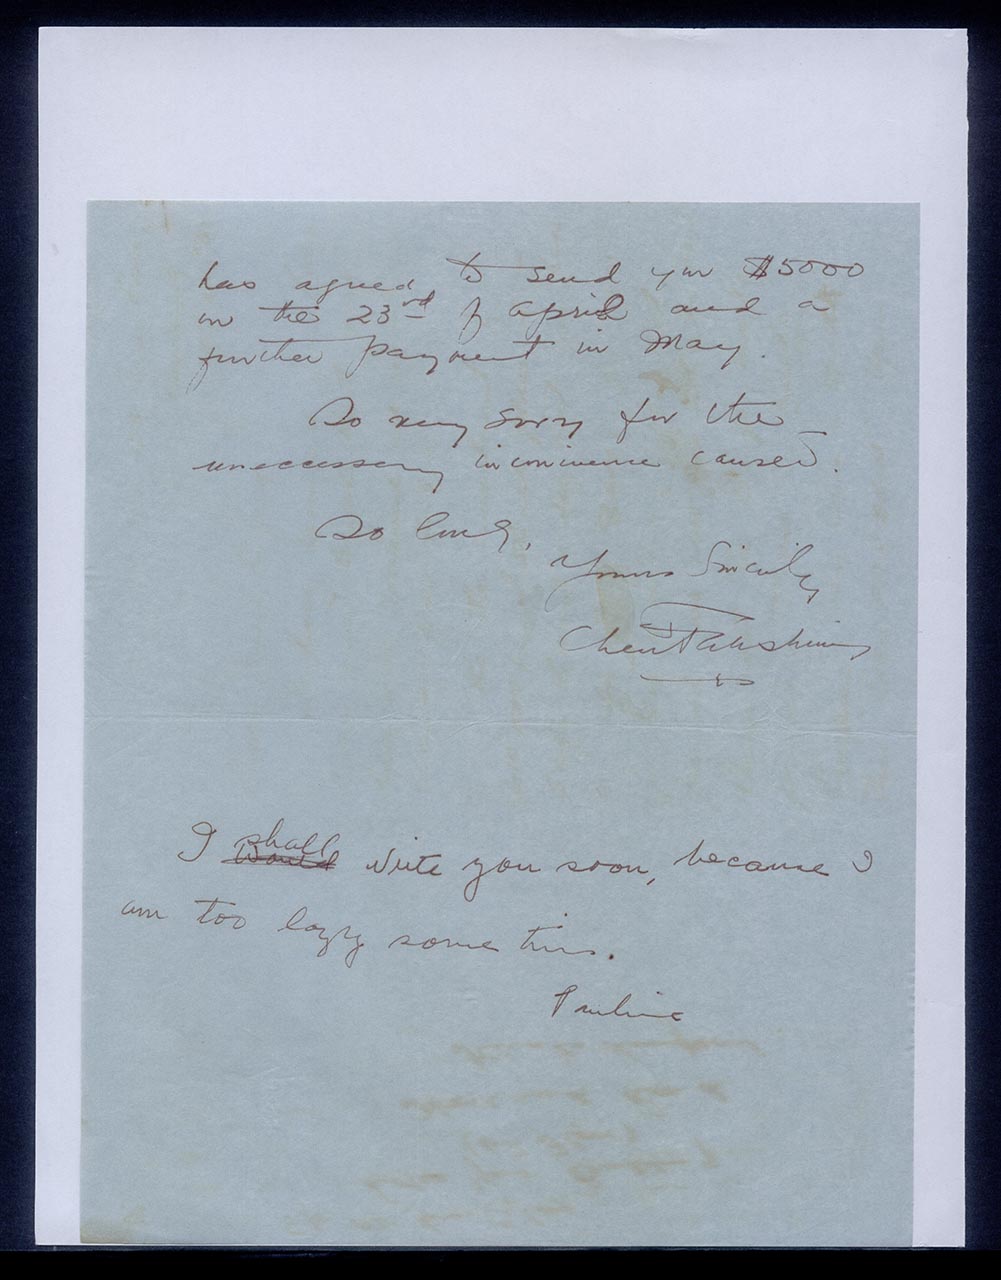 has agreed to send you $5000
on the 23rd of April and a
further payment in May.
So very sorry for the
uneccessary inconvience caused.
So long,
Yours Sincerly
I would shall write you soon, because I
am too lazy some tims.
Pauline